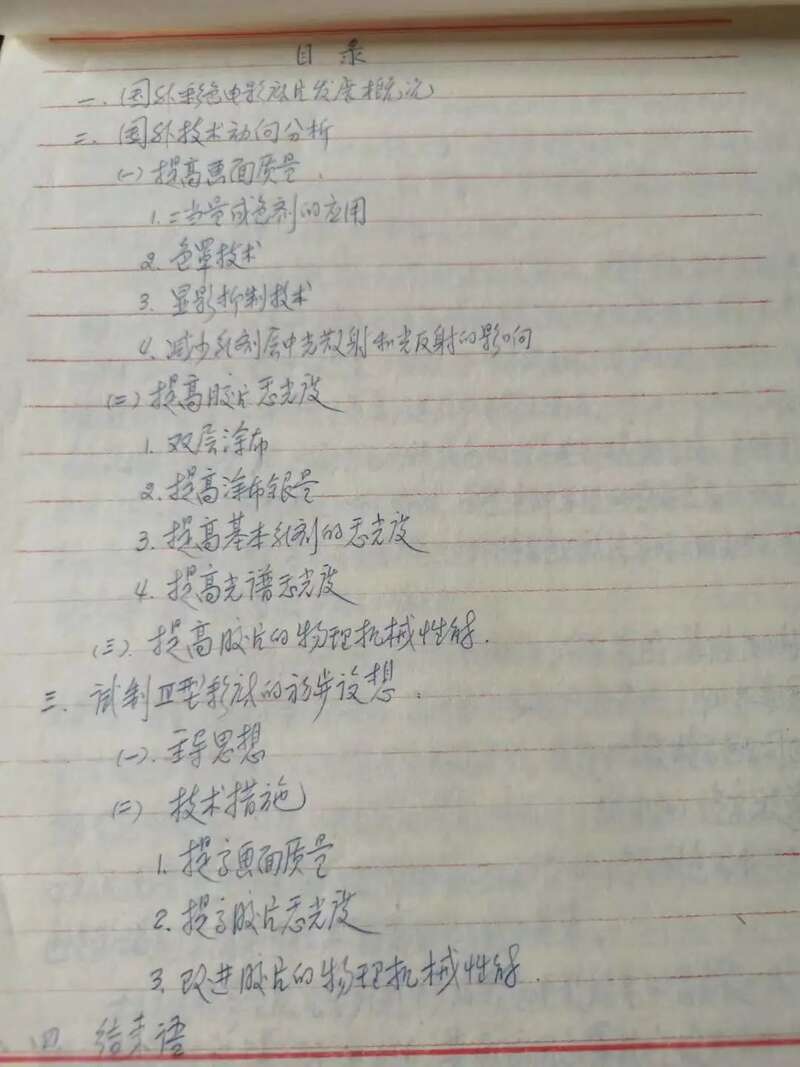 目录
一、国外彩色电影胶片发展概况
二、国外技术动向分析
(一)提高画面质量.
1.二当量成色剂的应用
2.色罩技术
3.显影抑制技术
4.减少乳剂层中光散射和光反射的影响
(二)提高胶片感光度
1.双层涂布
2.提高涂布银量
3.提高基本乳剂的感光度
4.提高光谱感光度
(三).提高胶片的物理机械性能.
三、试制Ⅱ型彩底的初步设想.
(一).主导思想
(二)技术措施
1.提高画面质量
2.提高胶片感光度
3.改进胶片的物理机械性能.
四.结束语